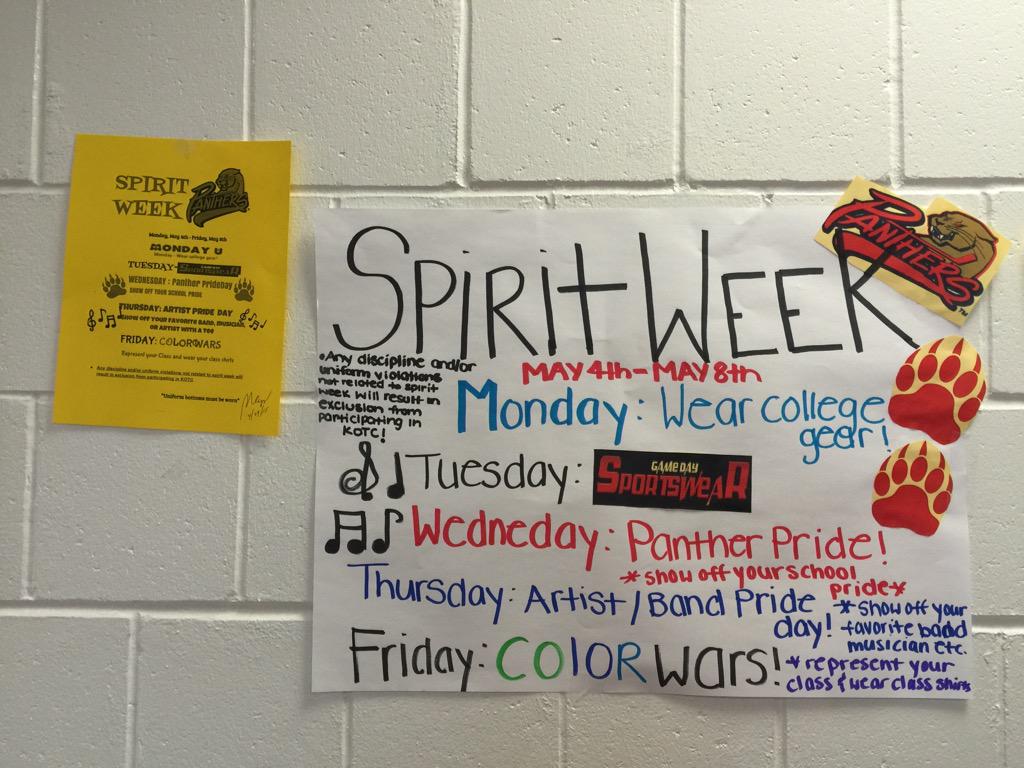 SPIRIT
WEEK
PANTHERS
Monday, May 4th - Friday, May 8th
MONDAY U
Monday - Wear college gear"
TUESDAY- SPORTSWEAR
WEDNESDAY : Panther PrideDay
SHOW OFF YOUR SCHOOL PRIDE
THURSDAY: ARTIST PRIDE DAY
SHOW OFF YOUR FAVORITE BAND, MUSICIAN,
OR ARTIST WITH A TOO
FRIDAY: COLORWARS
Represent your Class and wear your class shirts
Any discipline and/or uniform violations not related to spirit week will
result in exclusion from participating in KOTC
"Uniform bottoms must be worn"
SPIRIT WEEK
PANTHERS
TM
MAY 4th - MAY 8th
•Any discipline and/or
uniform violations
not related to spirit
week will result in
exclusion from
participating in
KOTC!
Monday: Wear college
gear!
Tuesday: GAME DAY
SPORTSWEAR
Wedneday: Panther Pride!
*show off your school
pride*
Thursday: Artist/Band Pride
day!
*show off your
favorite
musician etc.
Friday: COlOR wars!
*represent your
class & wear class shirts